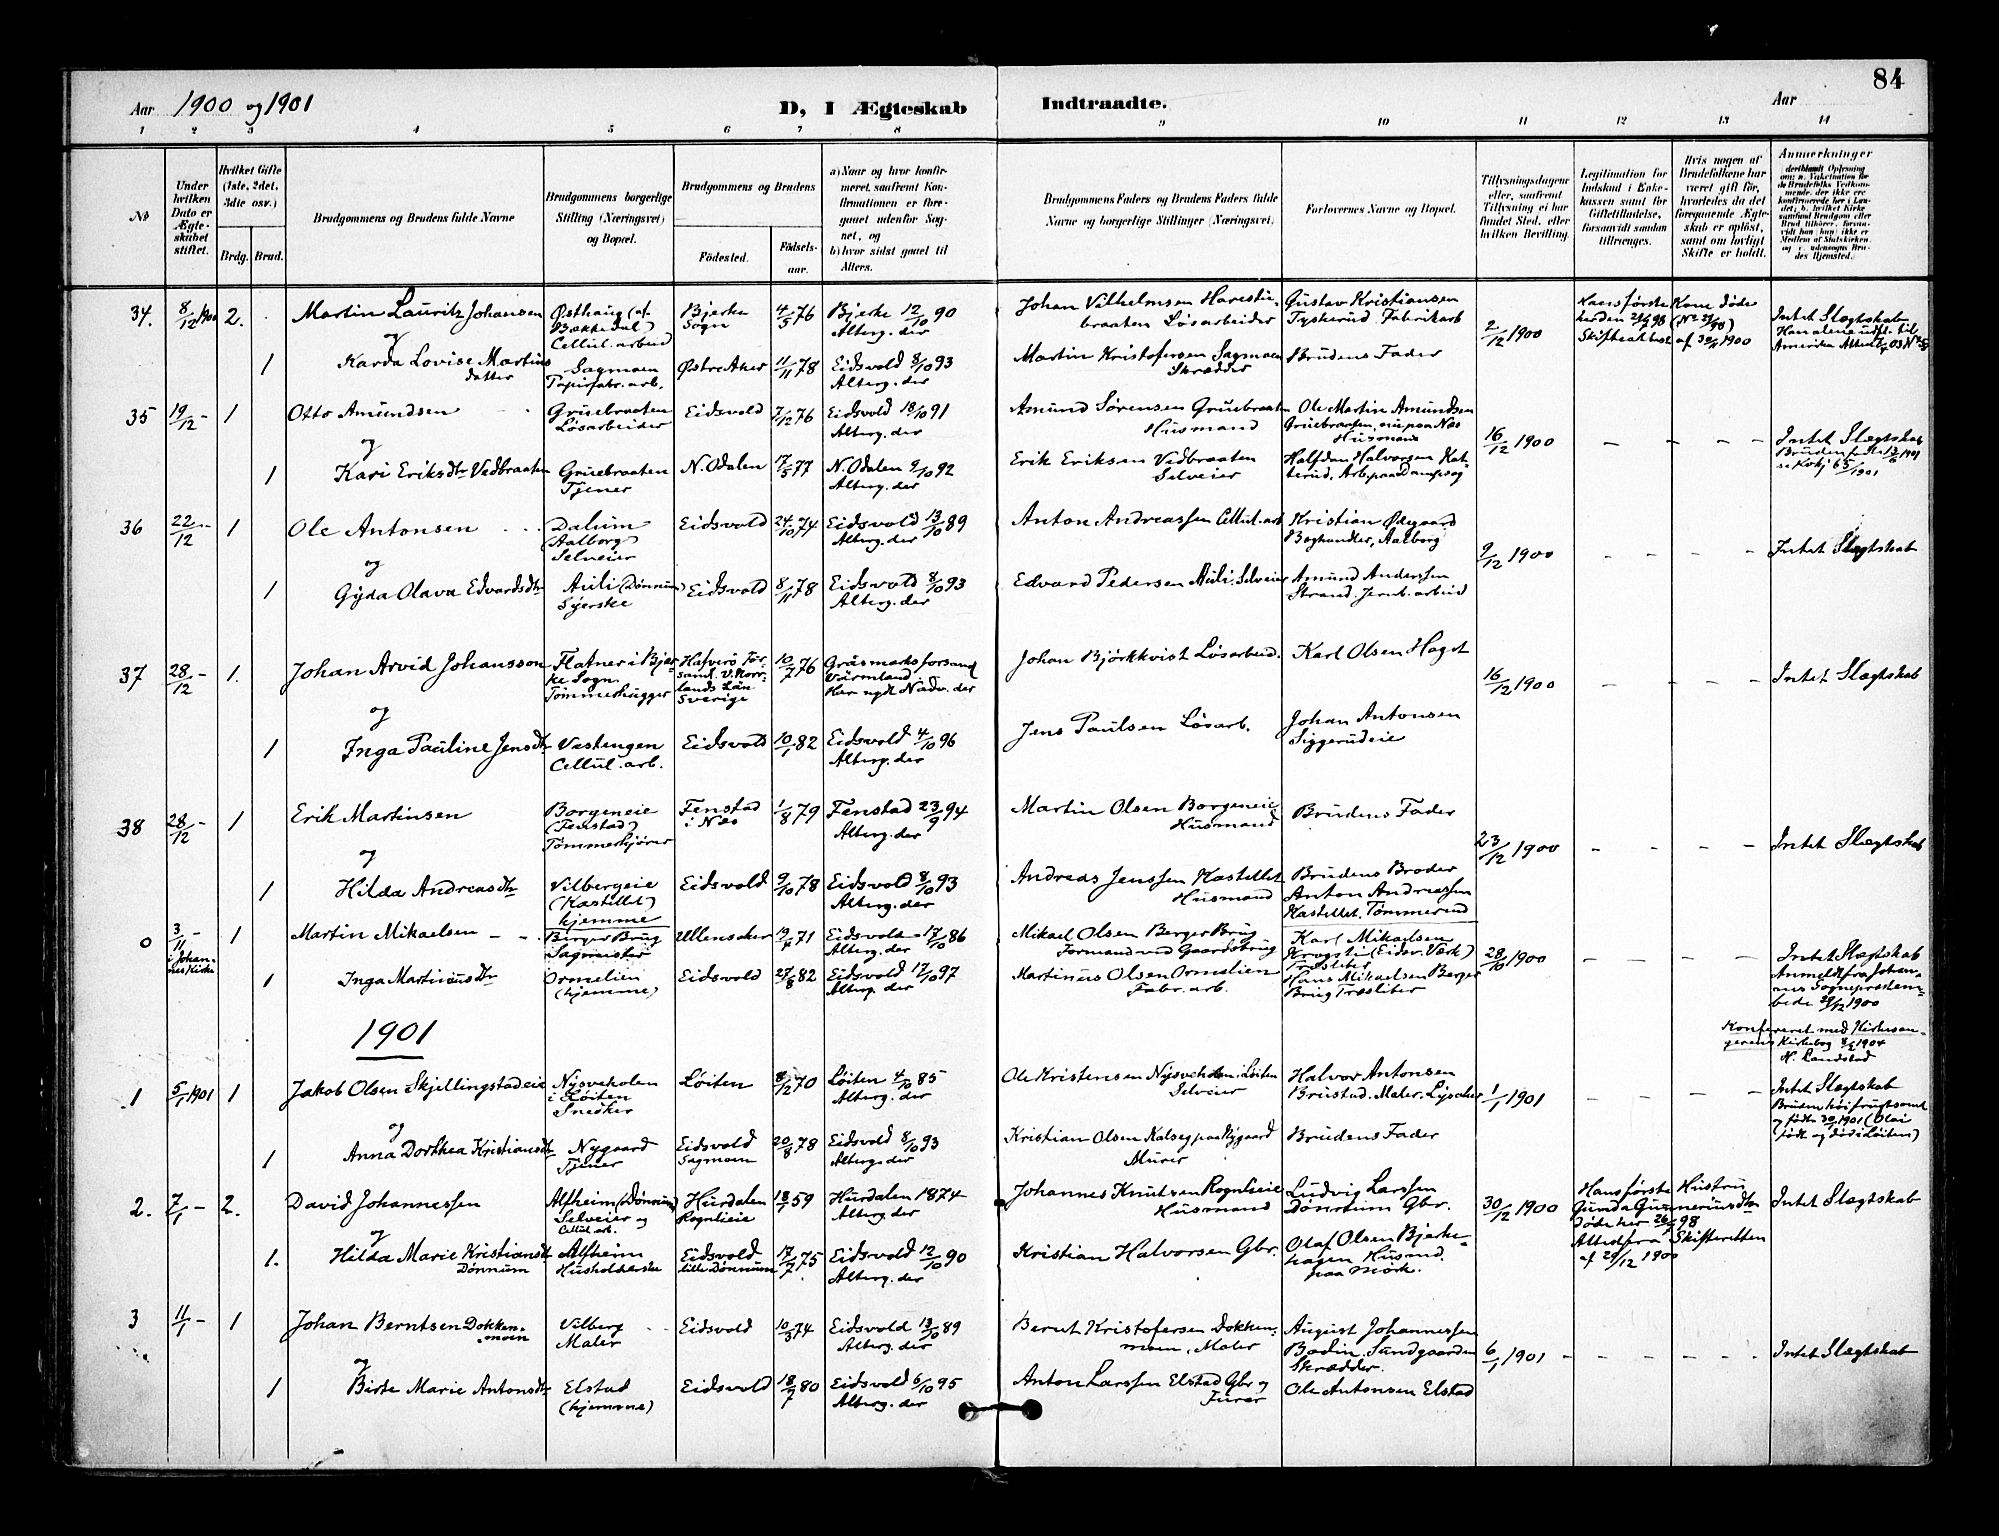 84
Aar 1900 og 1901
D, I Ægteskab Indtraadte.
Aar
1 2 3 4 5 6 7 8 9 10 11 12 13 14
No
Under hvilken Dato er Ægteskabet stiftet.
Hvilket Gifte (1ste, 2det, 3die osv.)
Brdg. Brud.
Brudgommens og Brudens fulde Navne
Brudgommens borgerlige Stilling (Næringsvei) og Bopæl.
Brudgommens og Brudens
Födested.
Födselsaar.
a) Naar og hvor konfirmeret, saafremt Konfirmationen er foregaaet udenfor Sognet, og
b) hvor sidst gaaet til Alters.
Brudgommens Faders og Brudens Faders fulde Navne og borgerlige Stillinger (Næringsvei).
Forlovernes Navne og Bopæl.
Tillysningsdagene eller, saafremt Tillysning ei har fundet Sted, efter hvilken Bevilling.
Legitimation for Indskud i Enkekassen samt for Giftetilladelse, forsaavidt saadan tiltrænges.
Hvis nogen af Brudefolkene har været gift för, hvorledes da det foregaaende Ægteskab er oplöst, samt om lovligt Skifte er holdt.
Anmerkninger
34. 8/12 1900 2. Martin Lauritz Johansen Østhaug (af Bakkedal) Cellul. arbeid Bjerke Sogn 4/5 76 Bjerke 12/10 90 Alterg. der Johan Vilhelmsen Harestubraaten Løsarbeider Gustav Kristiansen Tyskerud Fabrikarb 2/12 1900 Hans første Kone døde af 30/11 1900 Intet Slægtskab
og
1 Karda Lovise Martinsdatter Sagmoen Papirfabr. arb. Østre Aker 11/11 78 Eidsvold 8/10 93 Alterg. der Martin Kristofersen Sagmoen Skrædder Brudens Fader
35 19/12 - 1 Otto Amundsen Gruebraaten Løsarbeider Eidsvold 7/12 76 Eidsvold 18/10 91 Alterg. der Amund Sørensen Gruebraaten Husmand Ole Martin Amundsen Gruebraaten, nu paa Næs Husmand 16/12 1900 - - - - Intet Slægtskab
og
1 Kari Eriksdtr Vedbraaten Gruebraaten Tjener N. Odalen 17/5 77 N. Odalen 9/10 92 Alterg. der Erik Eriksen Vedbraaten Selveier Halfdan Halvorsen Arb. paa Dampsag
36 22/12 - 1 Ole Antonsen Dalum (Aalborg) Selveier Eidsvold 24/10 74 Eidsvold 13/10 89 Alterg. der Anton Andreassen Cellul. arb Kristian Ødegaard Boghandler, Aalborg 9/12 1900 - - - - Intet Slægtskab
og
1 Gyda Olava Edvardsdtr Auli (Dønnum) Syerske Eidsvold 8/11 78 Eidsvold 8/10 93 Alterg. der Edvard Pedersen Auli, Selveier Amund Anderssen Strand. Jernb. arbeid
37 28/12 - 1. Johan Arvid Johansson Flatner i Bjerke Sogn. Tømmerhugger Hafverö Församl. V. Norrlands Län Sverige 10/7 76 Gräsmarks forsaml Värmland Her nydt Nadv. der Johan Björkkvist Løsarbeid. Karl Olsen Haget 16/12 1900 - - - - Intet Slægtskab
og
1 Inga Pauline Jensdtr Vestengen Cellul. arb. Eidsvold 10/1 82 Eidsvold 4/10 96 Alterg. der Jens Paulsen Løsarb. Johan Antonsen Siggerudeie
38 28/12 - 1 Erik Martinsen Borgeneie (Fenstad) Tømmerkjører Fenstad i Næs 1/8 79 Fenstad 23/9 94 Alterg. der Martin Olsen Borgeneie Husmand Brudens Fader 23/12 1900 - - - - Intet Slægtskab
og
1 Hilda Andreasdtr Vilbergeie (Kastellet) hjemme Eidsvold 9/10 78 Eidsvold 8/10 93 Alterg. der Andreas Jenssen Kastellet Husmand Brudens Broder Anton Andreassen Kastellet. Tømmermd
0 3/11 - i Johannes Kirke 1 Martin Mikaelsen - - Berger Brug Sagmester Ullensaker 19/7 71 Eidsvold 17/10 86 Alterg. der Mikael Olsen Berger Brug Formand ved Gaardsbrug Karl Mikaelsen (Eidsv. Værk) Træsliber 28/10 1900 - - - - Intet Slægtskab Anmeldt fra Johannes Sognepræstembede 29/12 1900
1 Inga Martinusdtr Ormelien (hjemme) Eidsvold 27/8 82 Eidsvold 17/10 97 Alterg. der Martinus Olsen Ormelien Fabr. arb. Hans Mikaelsen Berger Brug Træsliber
1901
Konfereret med Kirkesangerens Kirkebog 8/2 1904
N. Landstad
1 5/1 1901 1 Jakob Olsen Skjellingstadeie Nysveholen i Løiten Snedker Løiten 8/12 70 Løiten 4/10 85 Alterg. der Ole Kristensen Nysveholen i Løiten Selveier Halvor Antonsen Brustad. Maler. 1/1 1901 - - - - Intet Slægtskab
og
1 Anna Dorthea Kristiansdtr Nygaard Tjener Eidsvold Sagmoen 20/8 78 Eidsvold 8/10 93 Alterg. der Kristian Olsen Kalseg paa Nygaard Murer Brudens Fader
2. 7/1 - 2. David Johannessen Alfheim (Dønnum) Selveier og Cellul. arb. Hurdalen Rognlieie 18/1 59 Hurdalen 1874 Alterg. der Johannes Knutsen Rognlieie Husmand Ludvig Larssen Dønnum Gbr. 30/12 1900 Hans første Hustru Gunda Gunneriusdtr døde her 26/6 98 Attest fra Skifteretten af 29/12 1900 Intet Slægtskab
og
1. Hilda Marie Kristiansdtr Dønnum Alfheim Husholderske Eidsvold lille Dønnum 17/7 75 Eidsvold 12/10 90 Alterg. der Kristian Halvorsen Gbr. Olaf Olsen Bjerkehagen Husmd. paa Mørk.
3 11/1 - 1 Johan Berntsen Dokkenmoen Vilberg Maler Eidsvold 10/3 74 Eidsvold 13/10 89 Alterg. der Bernt Kristofersen Dokkenmoen, Maler August Johannessen Bodin. Sundgaarden Skrædder. 6/1 1901 - - - - Intet Slægtskab
og
1 Birte Marie Antonsdtr Elstad (hjemme) Eidsvold 18/7 80 Eidsvold 6/10 95 Alterg. der Anton Larssen Elstad Gbr og Furer Ole Antonsen Elstad